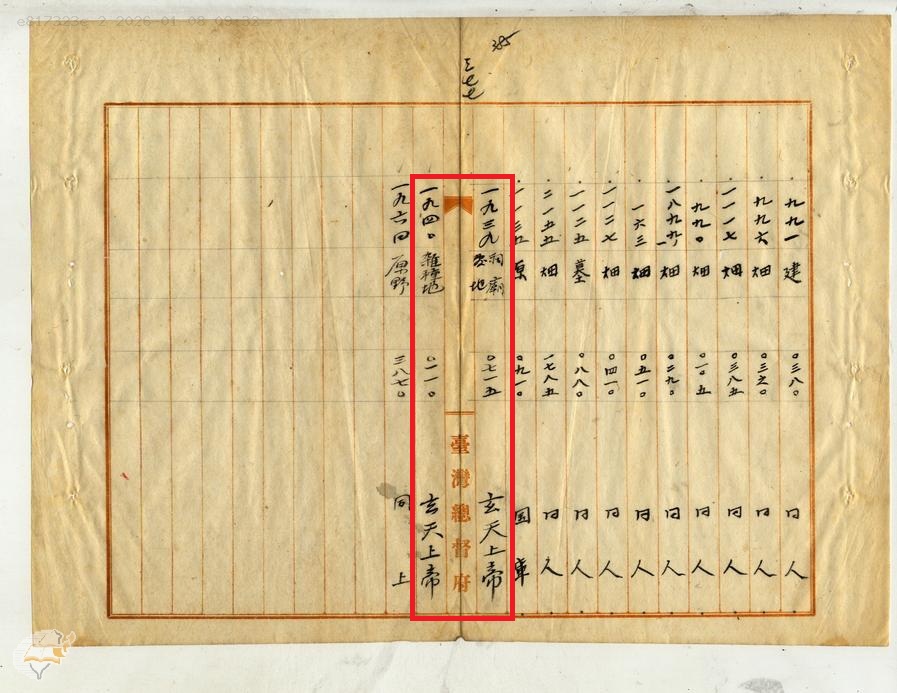 385
三七七
九九一 建 〇三八〇 同人
九九六 畑 同人
一一一七 畑 〇三八五 同人
九九〇 畑 〇一〇五 同人
一八九九 一 畑 〇二九〇 同人
一六三 畑 〇五一〇 同人
一一二七 畑 〇四一〇 同人
一一二五 墓 〇八八〇 同人
二一五五 畑 一七八五 同人
一一三五 原 〇九一〇 国庫
一九三九 祠廟敷地 〇七一五 玄天上帝
臺灣總督府
一九四〇 雜種地 〇一一〇 玄天上帝
原野 三八七〇 同上